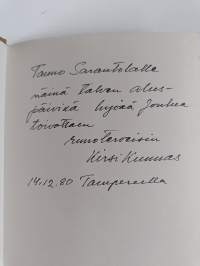 Tauno Sarantolalle
näinä talven alus-
päivinä hyvää Joulua
toivottaen
runoterveisin
Kirsi Kunnas
14.12.80 Tampereella